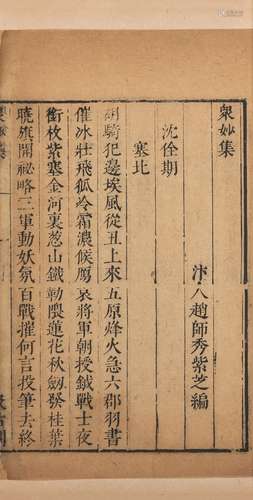 衆妙集
汴人趙師秀紫芝編
沈佺期
塞北
胡騎犯邊埃風從丑上來五原烽火急六郡羽書
催冰壯飛狐冷霜濃候鴈哀將軍朝授鉞戰士夜
銜枚紫塞金河裏葱山鐵勒隈蓮花秋劒發桂葉
曉旗開祕略三軍動妖氛百戰摧何言投筆去終